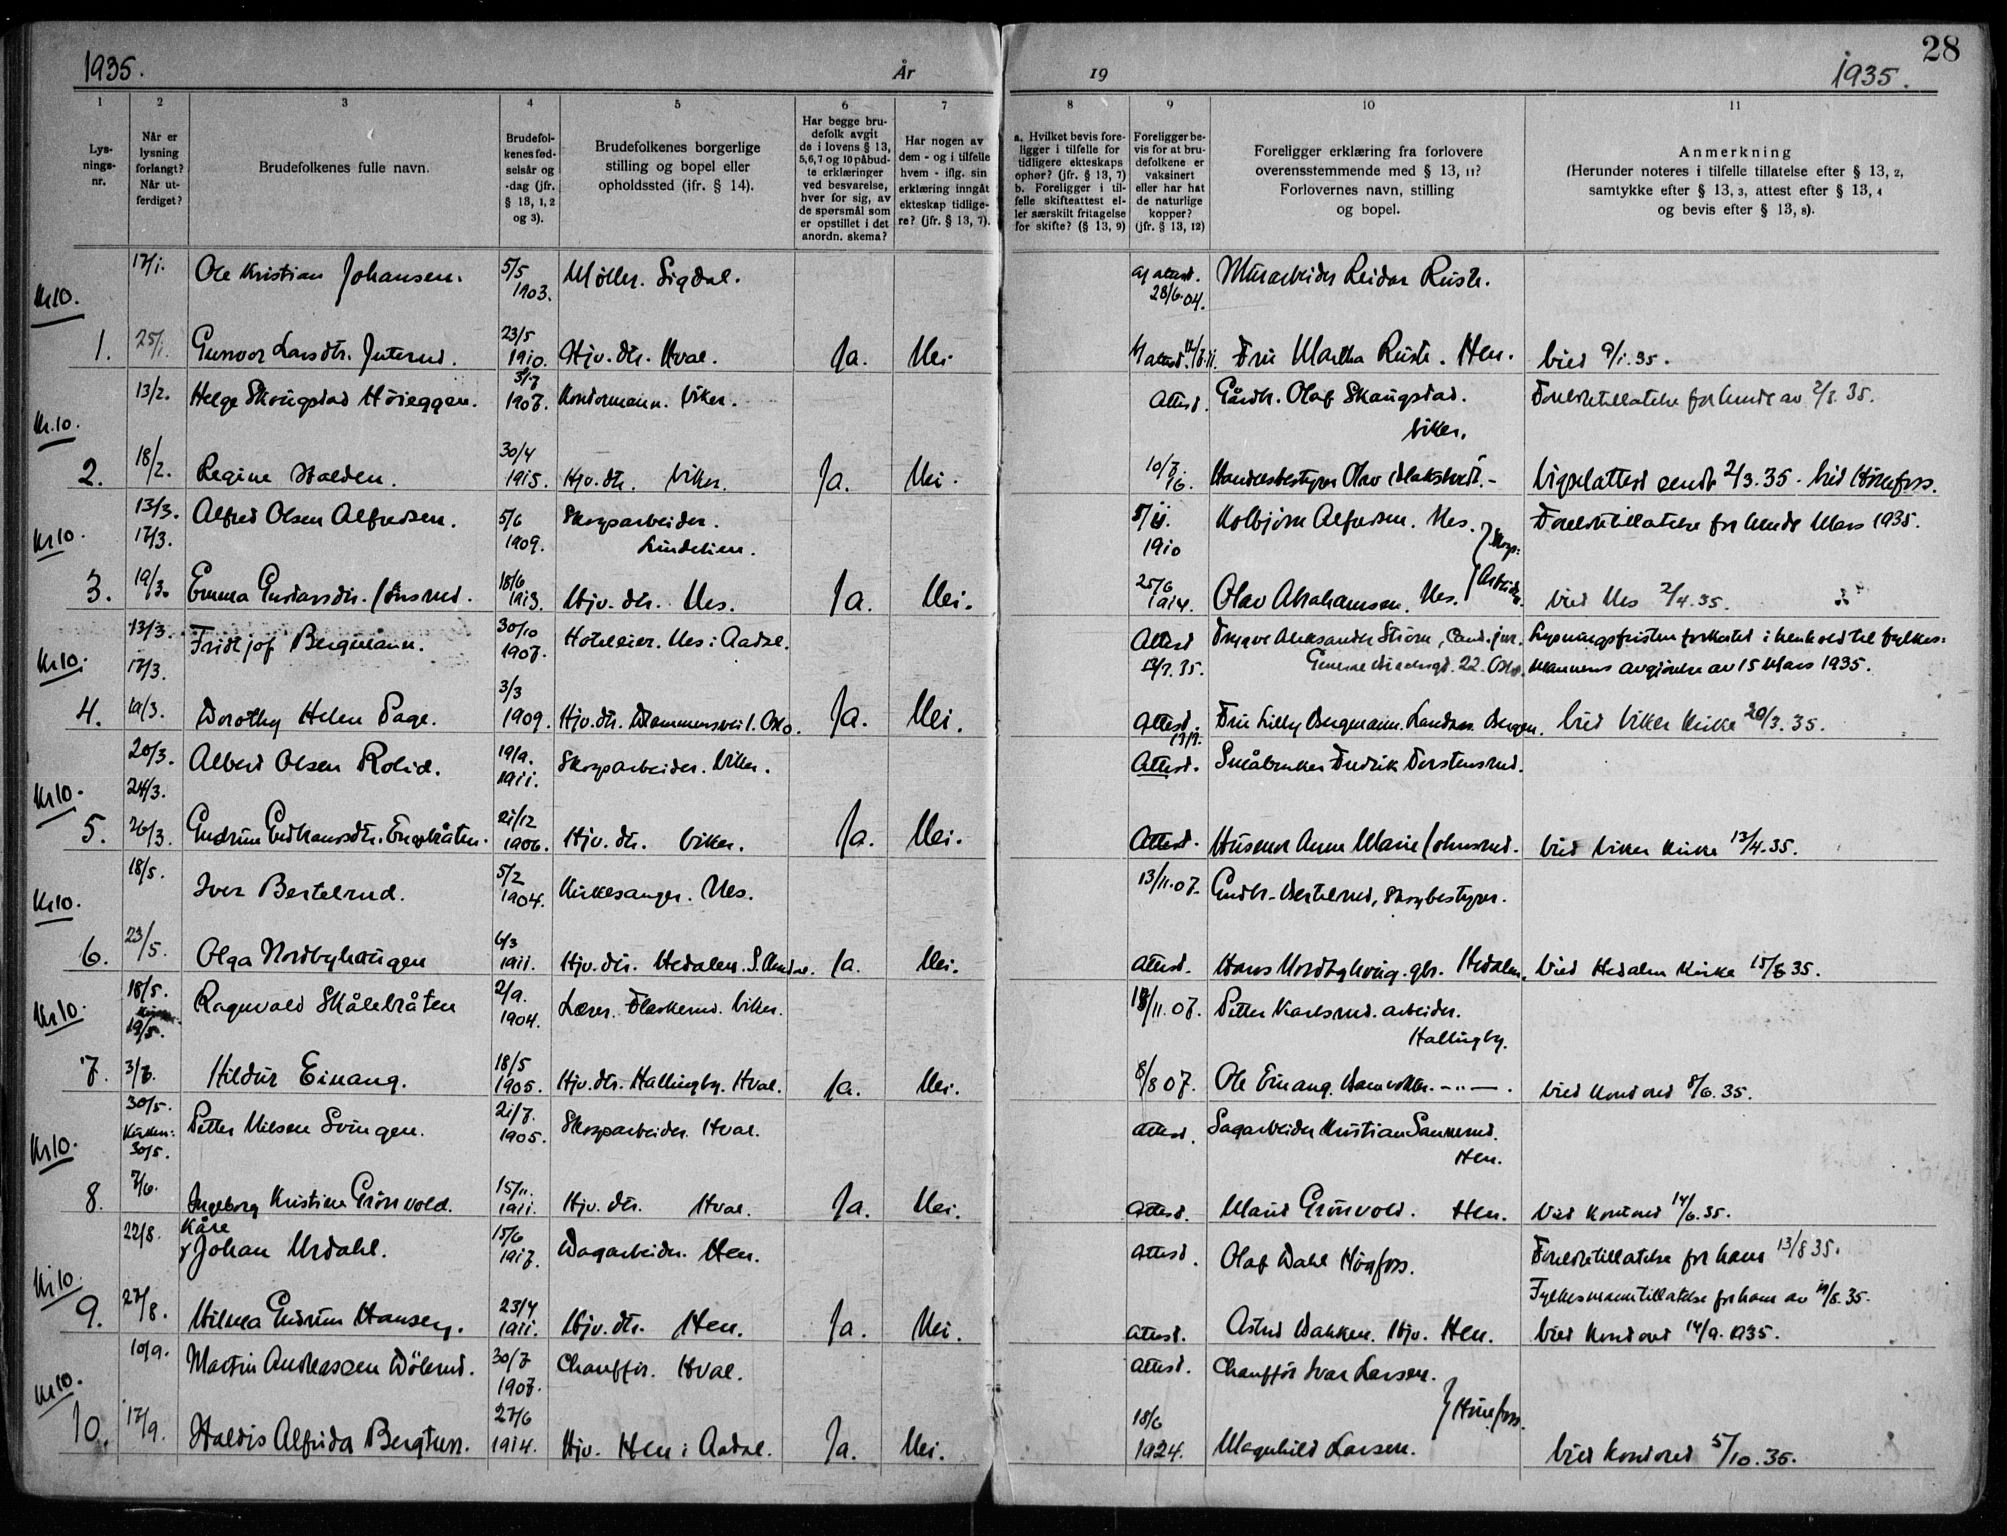 1935. År
19 1935. 28
1 2 3 4 5 6 7
8 9 10 11
Lys-
nings-
nr.
Når er
lysning
forlangt?
Når ut-
ferdiget?
Brudefolkenes fulle navn.
Brudefol-
kenes fød-
selsår og
-dag (jfr.
§ 13, 1, 2
og 3).
Brudefolkenes borgerlige
stilling og bopel eller
opholdssted (jfr. § 14).
Har begge bru-
defolk avgit
de i lovens § 13,
5,6,7 og 10 påbud-
te erklæringer
ved besvarelse,
hver for sig, av
de spørsmål som
er opstillet i det
anordn. skema?
Har nogen av
dem - og i tilfelle
hvem - iflg. sin
erklæring inngåt
ekteskap tidlige-
re? (jfr. § 13, 7).
a. Hvilket bevis fore-
ligger i tilfelle for
tidligere ekteskaps
ophør? (jfr. § 13, 7)
b. Foreligger i til-
felle skifteattest el-
ler særskilt fritagelse
for skifte? (§ 13, 9)
Foreligger be-
vis for at bru-
defolkene er
vaksinert
eller har hat
de naturlige
kopper?
(jfr. § 13, 12)
Foreligger erklæring fra forlovere
overensstemmende med § 13, 11?
Forlovernes navn, stilling
og bopel.
Anmerkning
(Herunder noteres i tilfelle tillatelse efter § 13, 2,
samtykke efter § 13, 3, attest efter § 13, 4
og bevis efter § 13, 8).
Kr 10. 17/1. Ole Kristian Johansen. 5/5 1903. Møller. Sigdal. 28/6.04. Murarbeider Reidar Ruste.
1. 25/1. Gunvor Larsdtr. Juterud. 23/5 1910. Hjv. dtr. Hval. Ja. Nei Fru Martha Ruste. Hen. Viet 9/1.35.
Kr. 10. 13/2. Helge Skougstad Høieggen. 3/7 1907. Kontormann. Viker. Attest. Gårdbr. Olaf Skaugstad. Viker. Foreldretillatelse for hende av 2/3.35.
2. 18/2. Regine Halden. 30/4 1915. Hjv. dtr. Viker. Ja. Nei. 10/7 16. Handelsbestyrer Olav Vigselattest sendt 2/3.35. Viet Hønefoss.
Kr 10. 13/3. 17/3. Alfred Olsen Alfredsen. 5/6 1909. Skogsarbeider. Lindelien. 1910 Kolbjørn Alfredsen. Nes. Foreldretillatelse for hende Mars 1935.
3. 19/3. Emma Gustavsdtr. 18/6 1913. Hjv. dtr. Nes. Ja. Nei. 25/6 1914. Olav Abrahamsen. Nes. } Skogs- arbeider. Viet Nes 2/4.35.
Kr 10. 13/3. 17/3. Fridtjof Bergmann. 30/10 1907. Hoteleier. Nes i Aadal. Attest 13/3.35. Trygve Aleksander Storm, Cand. jur. 22. Oslo. Lysningsfristen forkortet i henhold til Fylkes-
mannens avgjørelse av 15 Mars 1935.
4. 19/3. Dorothy Helen Page. 3/3 1909. Hjv. dtr. Drammensvei 1. Oslo. Ja. Nei. Attest. Fru Lilly Bergmann. Bergen. Viet Viker Kirke 20/3.35.
Kr 10. 20/3. 24/3. Albert Olsen Rolid. 19/9. 1911. Skogsarbeider. Viker. Attest. Småbruker Fredrik Torstensrud.
5. 26/3. Gudrun Gudbransdtr. Engebråten. 21/12 1906. Hjv. dtr. Viker. Ja. Nei. Attest. Husmor Anne Marie Johnsrud. Viet Viker Kirke 13/4.35.
Kr 10. 18/5. Iver Bertelrud. 5/2 1904. Kirkesanger. Nes. 13/11.07. Gudbr. Bertelrud, Skogbestyrer.
6. 23/5. Olga Nordbyhaugen 6/3 1911. Hjv. dtr. Hedalen. S. Aurdal. Ja. Nei. Attest. Hans Nordbyhaug. gbr. Hedalen. Viet Hedalen Kirke 15/6 35.
Kr 10. 18/5. 19/5. Ragnvald Skålebråten 2/9. 1904. Lærer. Flaskerud. Viker. 18/11.07. Petter Karlsrud. arbeider. Hallingby.
7. 3/6. Hildur Einang. 18/5 1905. Hjv. dtr. Hallingby. Hval. Ja. Nei. 8/8 07. Ole Einang. Damvokter. -"-. Viet Kontoret 8/6.35.
Kr 10. 30/5. Kirken: 30/5. Petter Nilsen Svingen. 21/7. 1905. Skogsarbeider. Hval. Attest. Sagarbeider Kristian Sannerud. Hen.
8. 7/6. Ingeborg Kristine Grønvold. 15/11. 1911. Hjv. dtr. Hval. Ja. Nei. Attest. Marit Grønvold. Hen. Viet Kontoret 14/6.35.
Kr 10. 22/8. Kåre Johan Urdahl. 15/6 1917. Dagarbeider. Hen. Attest. Olaf Dahl Høgfoss. Foreldretillatelse for ham 13/8 35.
Fylkesmanntillatelse for ham av 19/8.35.
9. 27/8. Hilma Gudrun Hansen. 23/4 1911. Hjv. dtr. Hen. Ja. Nei. Attest. Astrid Bakken. Hjv. Hen. Viet Kontoret 14/9.1935.
Kr 10. 10/9. Martin Andreassen Dølerud. 30/7 1907. Chauffør. Hval. Attest. Chauffør Ivar Larsen.
10. 17/9. Haldis Alfrida Bergtun. 27/6 1914. Hjv. Hen i Aadal. Ja. Nei. 18/6 1924. Magnhild Larsen. } Hønefoss. Viet Kontoret 5/10.35.